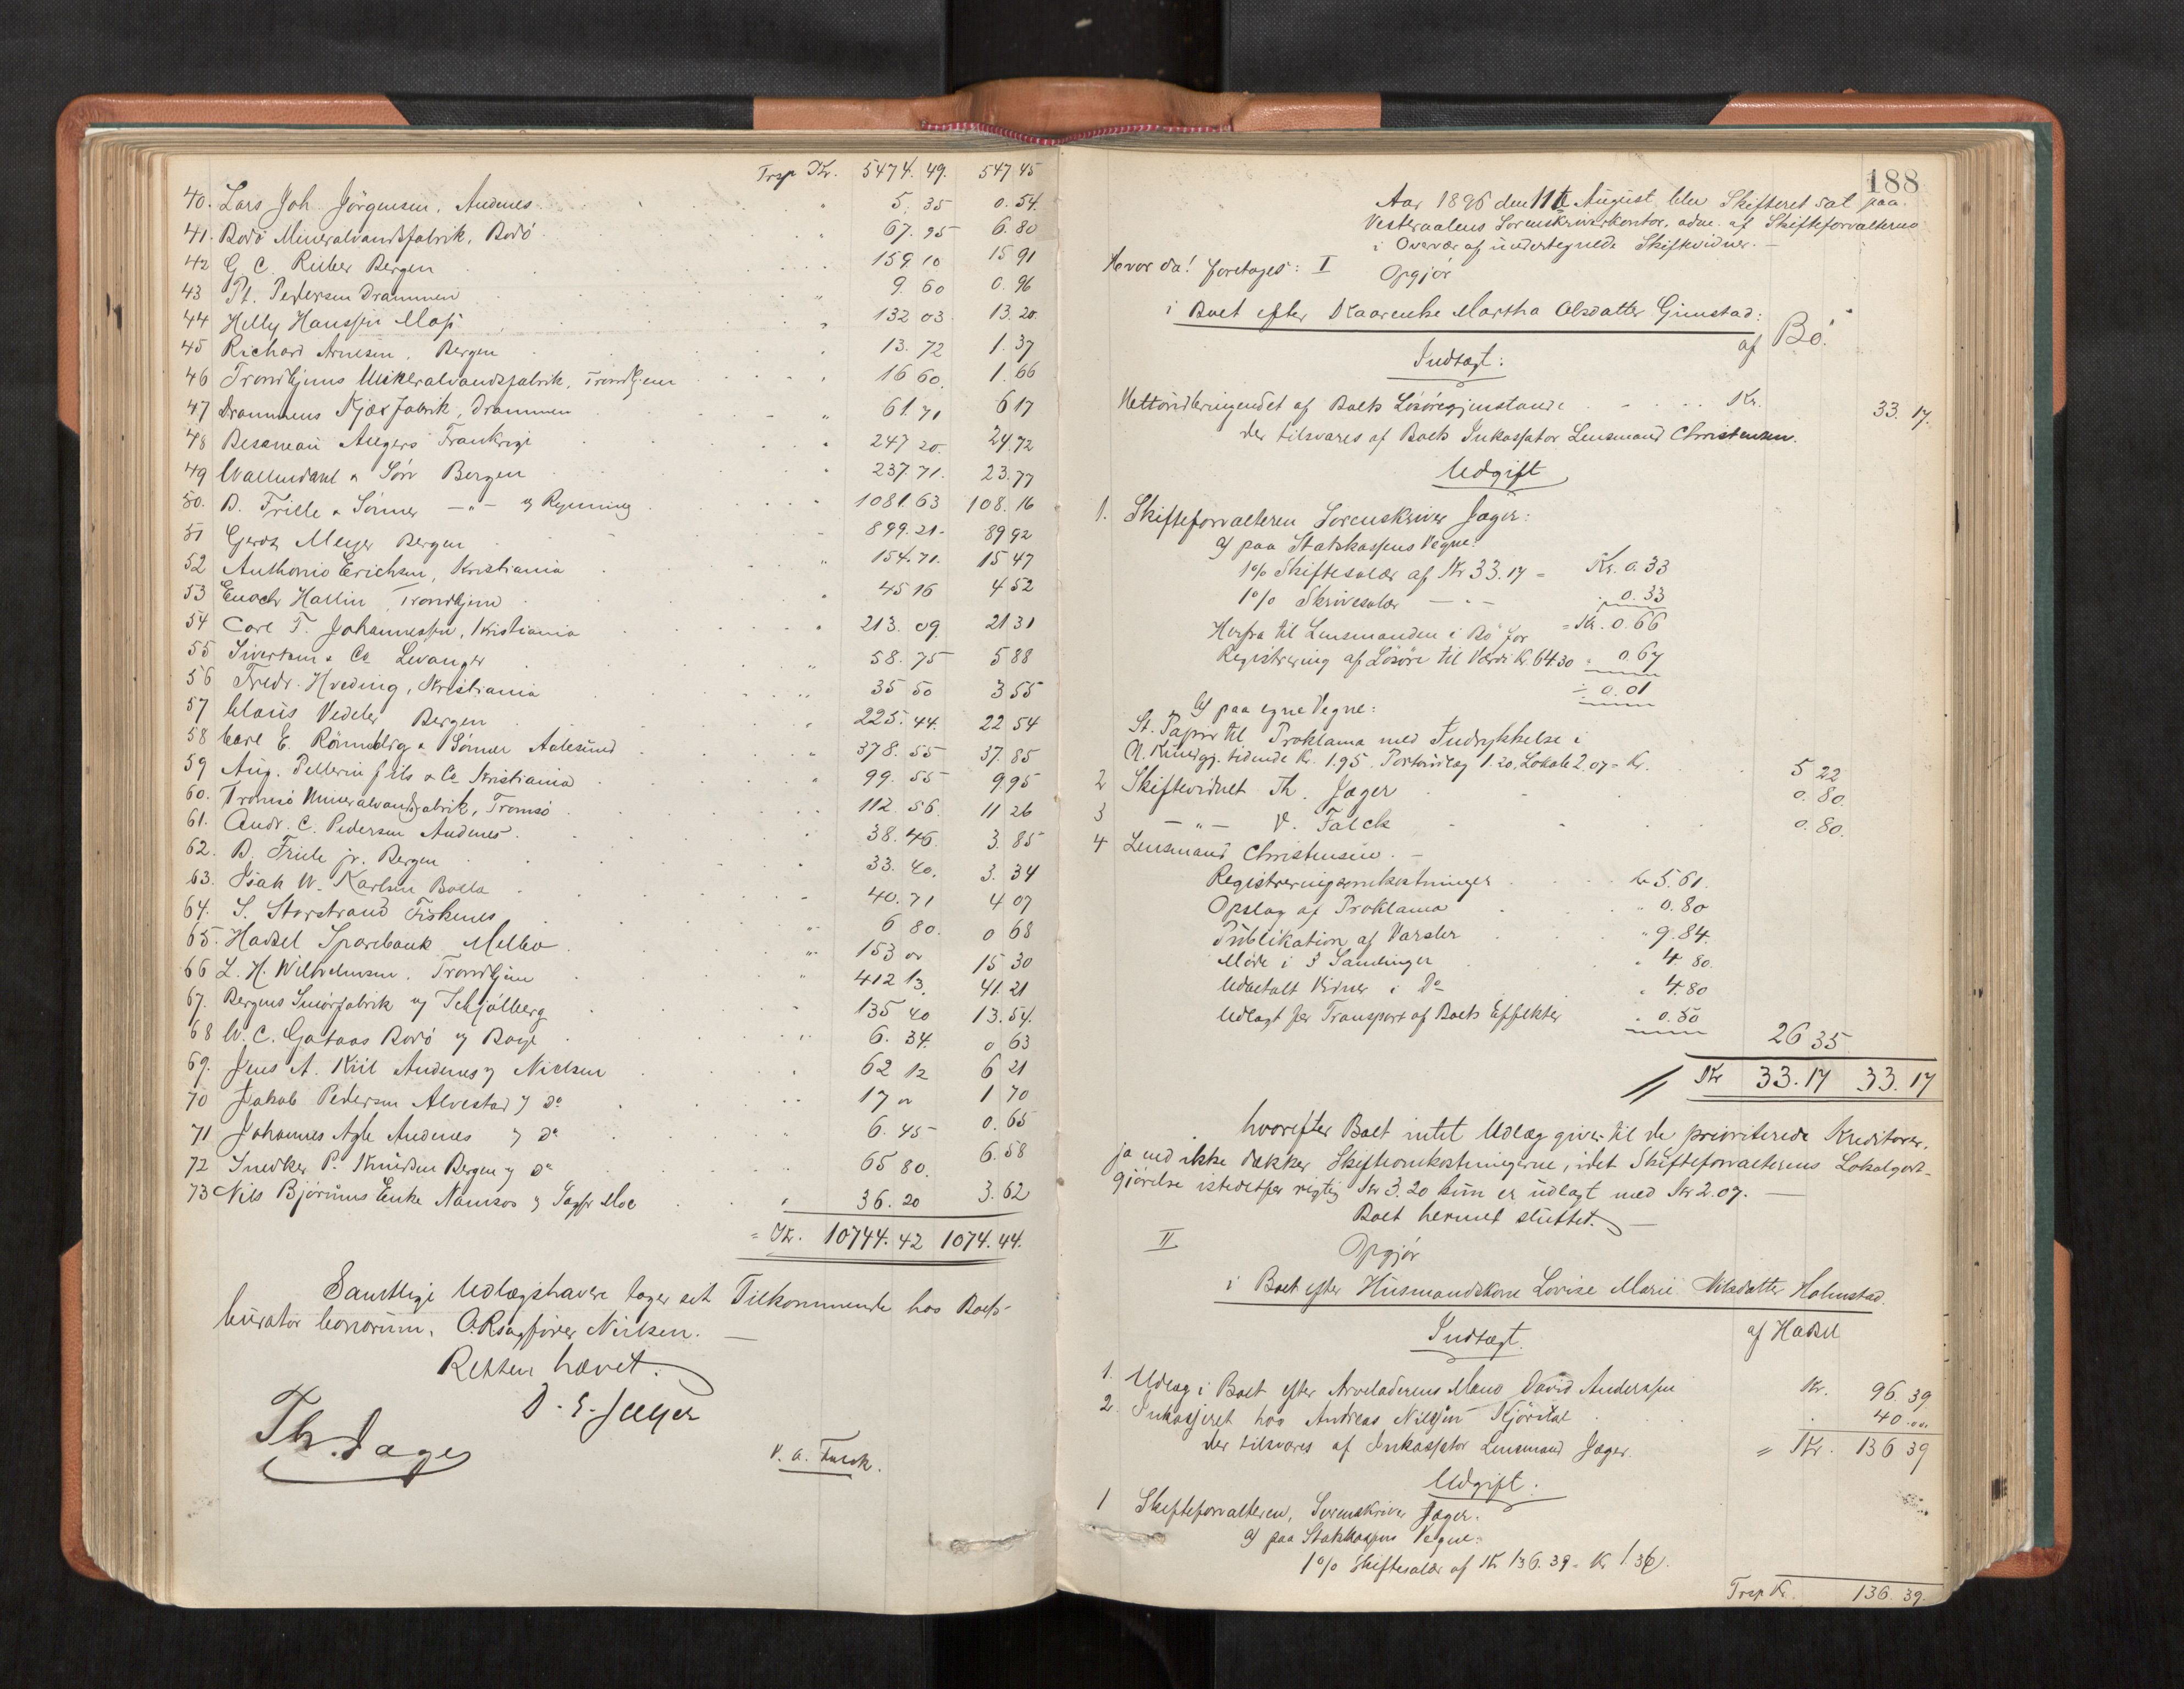 Trsp Kr. 5474.49. 547 45
40. Lars Joh. Jörgensen, Andenes " 5.35 0.54.
41. Bodö Mineralvandsfabrik, Bodö " 67.95 6.80
42 G. C. Rieber Bergen 159.10 15 91
43 Pt. Pedersen Drammen " 9.60 0.96
44 Helly Hanssen Moss " 132 03 13.20
45 Richard Arnesen, Bergen " 13.72 1.37
46 Trondhjems Mineralvandsfabrik, Trondhjem " 16 60. 1.66
47 Drammens Kjæxfabrik, Drammen " 61.71 6 17
48 Besareau Angers Frankrige " 247 20. 24.72
49 Wallendahl & Sön Bergen " 237.71. 23.77
50. D. Friele & Sönner — " — ɔ: Rynning " 1081.63 108.16
51 Gerdt Meyer Bergen " 899.21. 89 92
52 Anthonio Erichsen, Kristiania " 154.71. 15 47
53 Enoch Hallin, Trondhjem " 45 16 4 52
54 Carl F. Johannessen, Kristiania " 213.09 21 31
55 Sivertsen & Co Levanger " 58.75 5 88
56 Fredr. Hveding, Kristiania " 35 50 3 55
57 Claus Vedeler Bergen " 225.44. 22 54
58 Carl E. Rönneberg & Sönner Aalesund " 378.55 37.85
59 Aug. Pellerin fils & Co Kristiania " 99.55 9 95
60. Tromsö Mineralvandsfabrik, Tromsö 112.56. 11 26
61. Andr. C. Pedersen Andenes. " 38.46. 3.85
62. D. Friele jr. Bergen " 33.40. 3.34
63. Isak W. Karlsen Bolla " 40.71 4 07
64. S. Storstrand Fiskenes " 6 80. 0 68
65. Hadsel Sparebank Melbo " 153 00 15 30
66 L. H. Wilhelmsen, Trondhjem " 412 13. 41.21
67. Bergens Smörfabrik ɔ: Schjölberg " 135 40 13.54.
68 W. C. Gataas Bodö ɔ: " 6.34. 0 63
69. Jens A. Kiil Andenes ɔ: Nielsen " 62 12 6 21
70 Jakob Pedersen Alvestad ɔ: Do " 17 00 1 70
71 Johannes Andenes ɔ: Do " 6.45 0.65
72 Snedker P. Knudsen Bergen ɔ: Do " 65 80. 6.58
73 Nils Bjørums Enke Namsos ɔ: Sagfr Moe " 36.20 3.62
= Kr. 10744.42 1074.44.
Samtlige Udlægshavere tager sit Tilkommende hos Boets
curator bonorum, O.Rsagfører Nielsen. —
Retten hævet.
Th. Jæger D. E. Jæger
V. A. Falck.
188
Aar 1896 den 11te August blev Skifteret sat paa
Vesteraalens Sorenskriverkontor, adm. af Skifteforvalteren
i Overvær af undertegnede Skiftevidner. —
Hvor da! foretages: I Opgjör
i Boet efter Kaarenhe Martha Olsdatter Gimstad:
af Bö.
Indtægt:
Nettoudbringendet af Boets Lösöregjenstande Kr. 33.17.
der tilsvares af Boets Inkassator Lensmand Christensen.
Udgift
1. Skifteforvalteren Sorenskriver Jæger:
a) paa Statskassens Vegne:
1% Skiftesalær af Kr 33.17 = Kr. 0.33
1% Skrivesalær — " — " 0.33
= Kr. 0.66
Herfra til Lensmanden i Bö for
Registrering af Lösöre til Værdi Kr. 64 30 = 0.67
÷ 0.01
b) paa egne Vegne:
St. Papir til Proklama med Indrykkelse i
N. Kundgj. tidende Kr. 1.95. Portoudlæg 1.20, Lokale 2.07 = Kr. 5 22
2 Skiftevidnet Th. Jæger 0.80.
3 — " — V. Falck 0.80.
4 Lensmand Christensen. —
Registreringsomkostninger Kr 5.61.
Opslag af Proklama " 0.80
Publikation af Varsler " 9.84.
Möde i 3 Samlinger " 4.80.
Udbetalt Vidner i Do " 4.80
Udlagt for Transport af Boets Effekter " 0.50
26 35
Kr 33.17 33.17
hvorefter Boet intet Udlæg giver til de prioriterede Kreditorer,
ja end ikke dækker Skifteomkostningerne, idet Skifteforvalterens Lokalgodt-
gjörelse istedetfor rigtig Kr 3.20 kun er udlagt med Kr 2.07. —
Boet hermed sluttet. —
II Opgjör
i Boet efter Husmandskone Lovise Marie Nilsdatter Holmstad.
af Hadsel
Indtægt.
1. Udlæg i Boet efter Arveladerens Mand David Anderssen Kr. 96.39
2. Inkasseret hos Andreas Nilssen " 40.00.
der tilsvares af Inkassator Lensmand Jæger. = Kr. 136 39
Udgift:
1 Skifteforvalteren, Sorenskriver Jæger.
a) paa Statskassens Vegne:
1% Skiftesalær af Kr 136.39 = Kr 1.36.
Trsp Kr. 136.39.